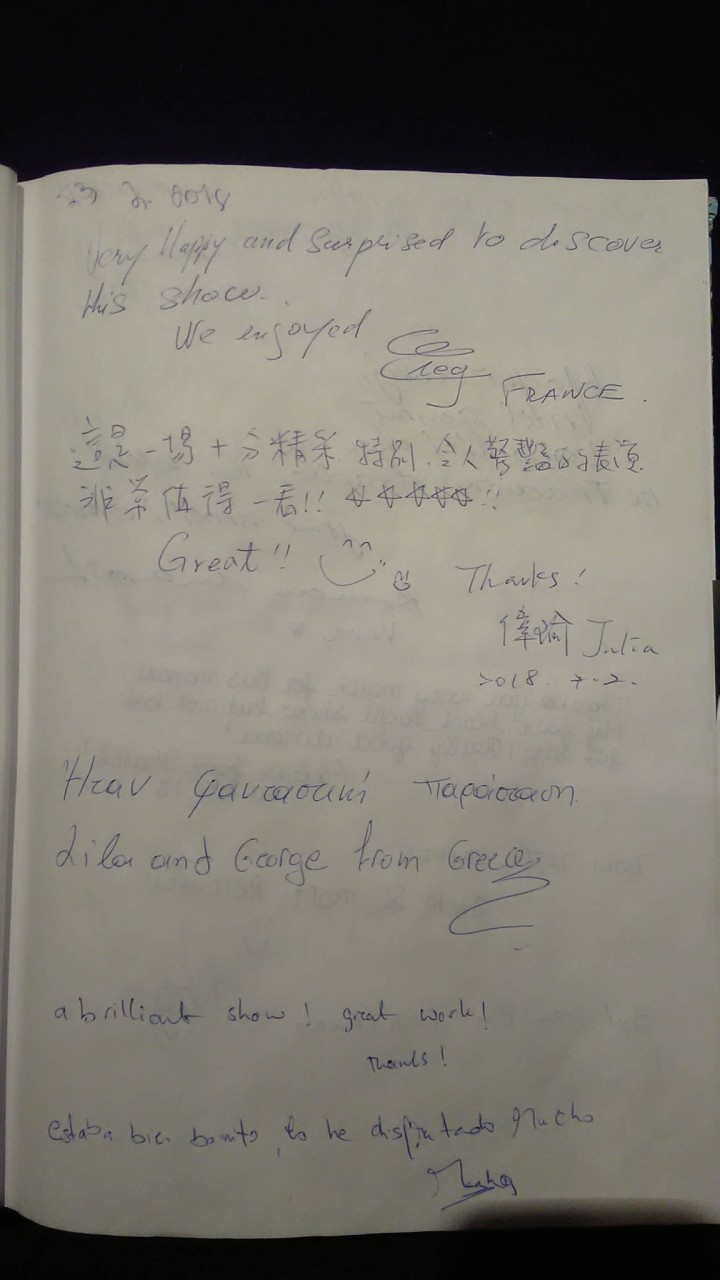 Very Happy and Surprised to discover
this show.
We enjoyed
FRANCE.
這是一場十分精采、特別、令人驚豔的表演
非常值得一看!! ☆☆☆☆☆!!
Great!!
Thanks!
偉瑜 Julia
2018. 7. 2.
Ήταν φανταστική παράσταση
Lila and George from Greece
a brilliant show! great work!
Thanks!
estaba bien bonito, lo he disfrutado Mucho